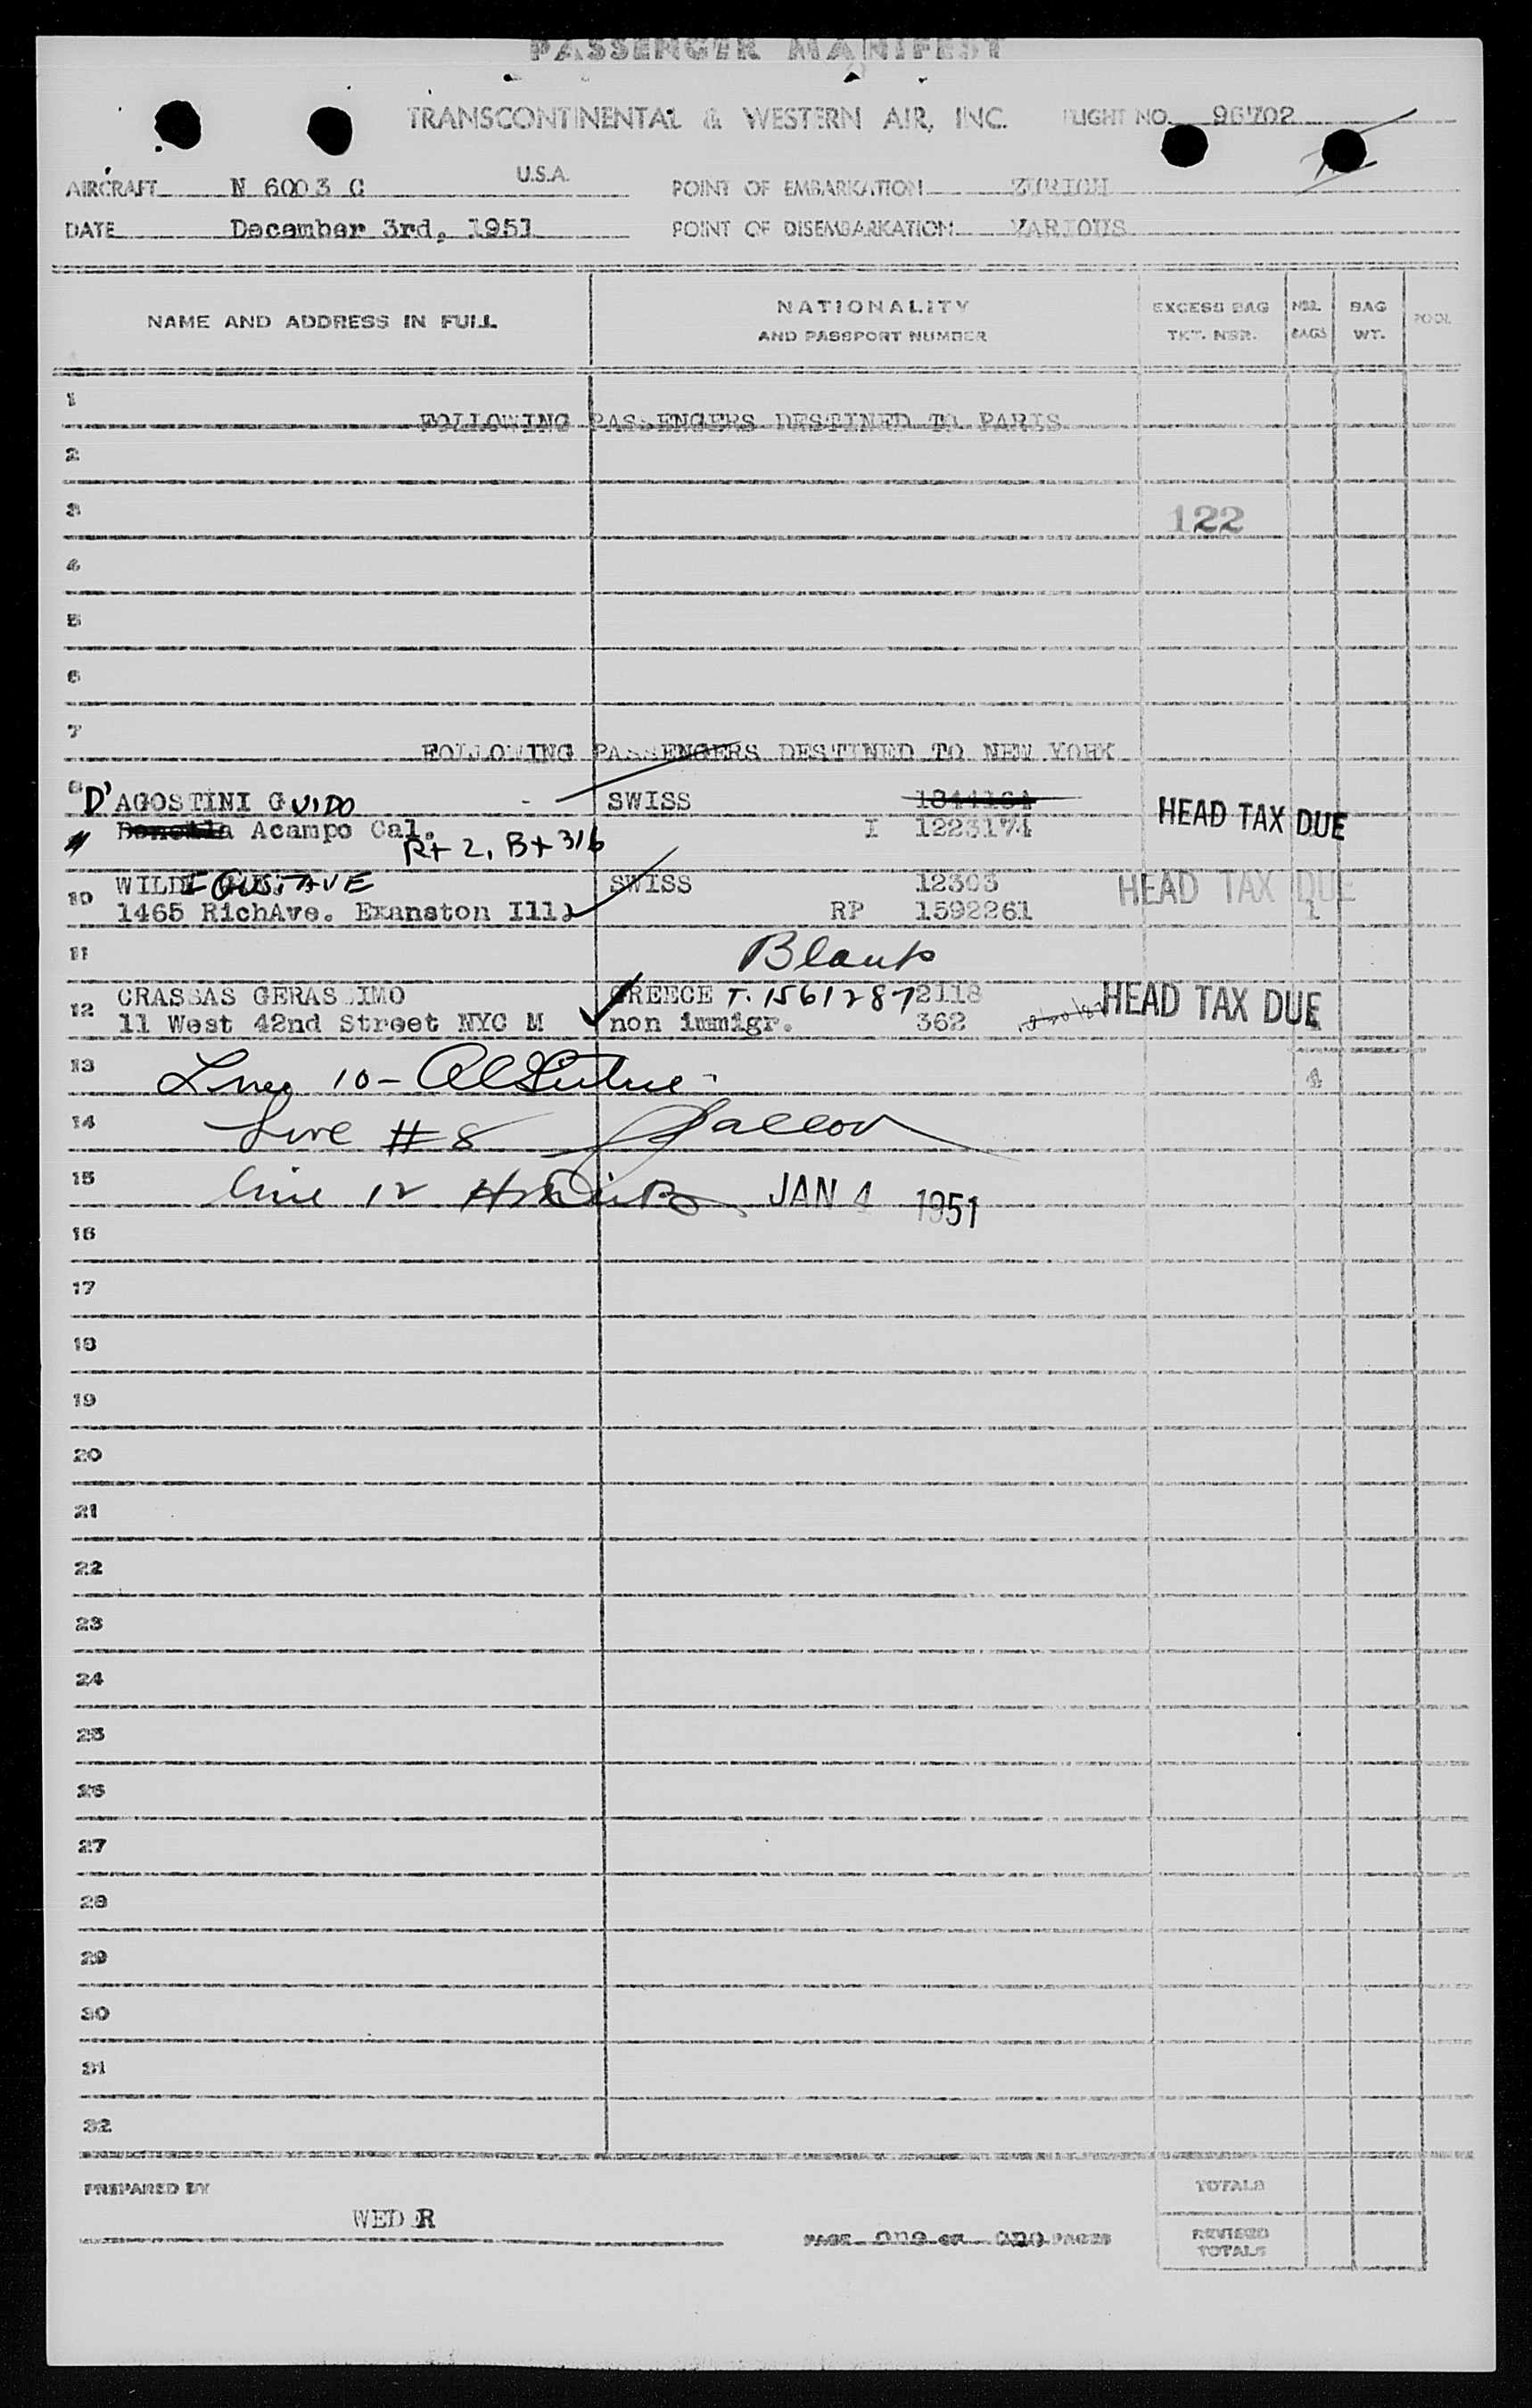 PASSENGER MANIFEST
TRANSCONTINENTAL & WESTERN AIR, INC. FLIGHT NO. 96702
AIRCRAFT N 6003 C U.S.A. POINT OF EMBARKATION ZURICH
DATE December 3rd, 1951 POINT OF DISEMBARKATION VARIOUS
NAME AND ADDRESS IN FULL NATIONALITY AND PASSPORT NUMBER EXCESS BAG TKT. NBR. NBR. BAGS BAG WT. POOL
1 FOLLOWING PASSENGERS DESTINED TO PARIS
2
3 122
4
5
6
7 FOLLOWING PASSENGERS DESTINED TO NEW YORK
8 D'AGOSTINI GUIDO SWISS
Acampo Cal. I 1223174 HEAD TAX DUE
Rt 2, Bx 316
10 WILDI GUSTAVE SWISS 12303 HEAD TAX DUE
1465 RichAve. Exanston Ill. RP 1592261 1
11 Blank
12 CRASSAS GERASSIMO GREECE T. 1561287 2118 HEAD TAX DUE
11 West 42nd Street NYC M non immigr. 362
13 Line 10 - 4
14 Line #8
15 Line 12 JAN 4 1951
16
17
18
19
20
21
22
23
24
25
26
27
28
29
30
31
32
PREPARED BY WEDER TOTALS
PAGE one OF one PAGES REVISED TOTALS